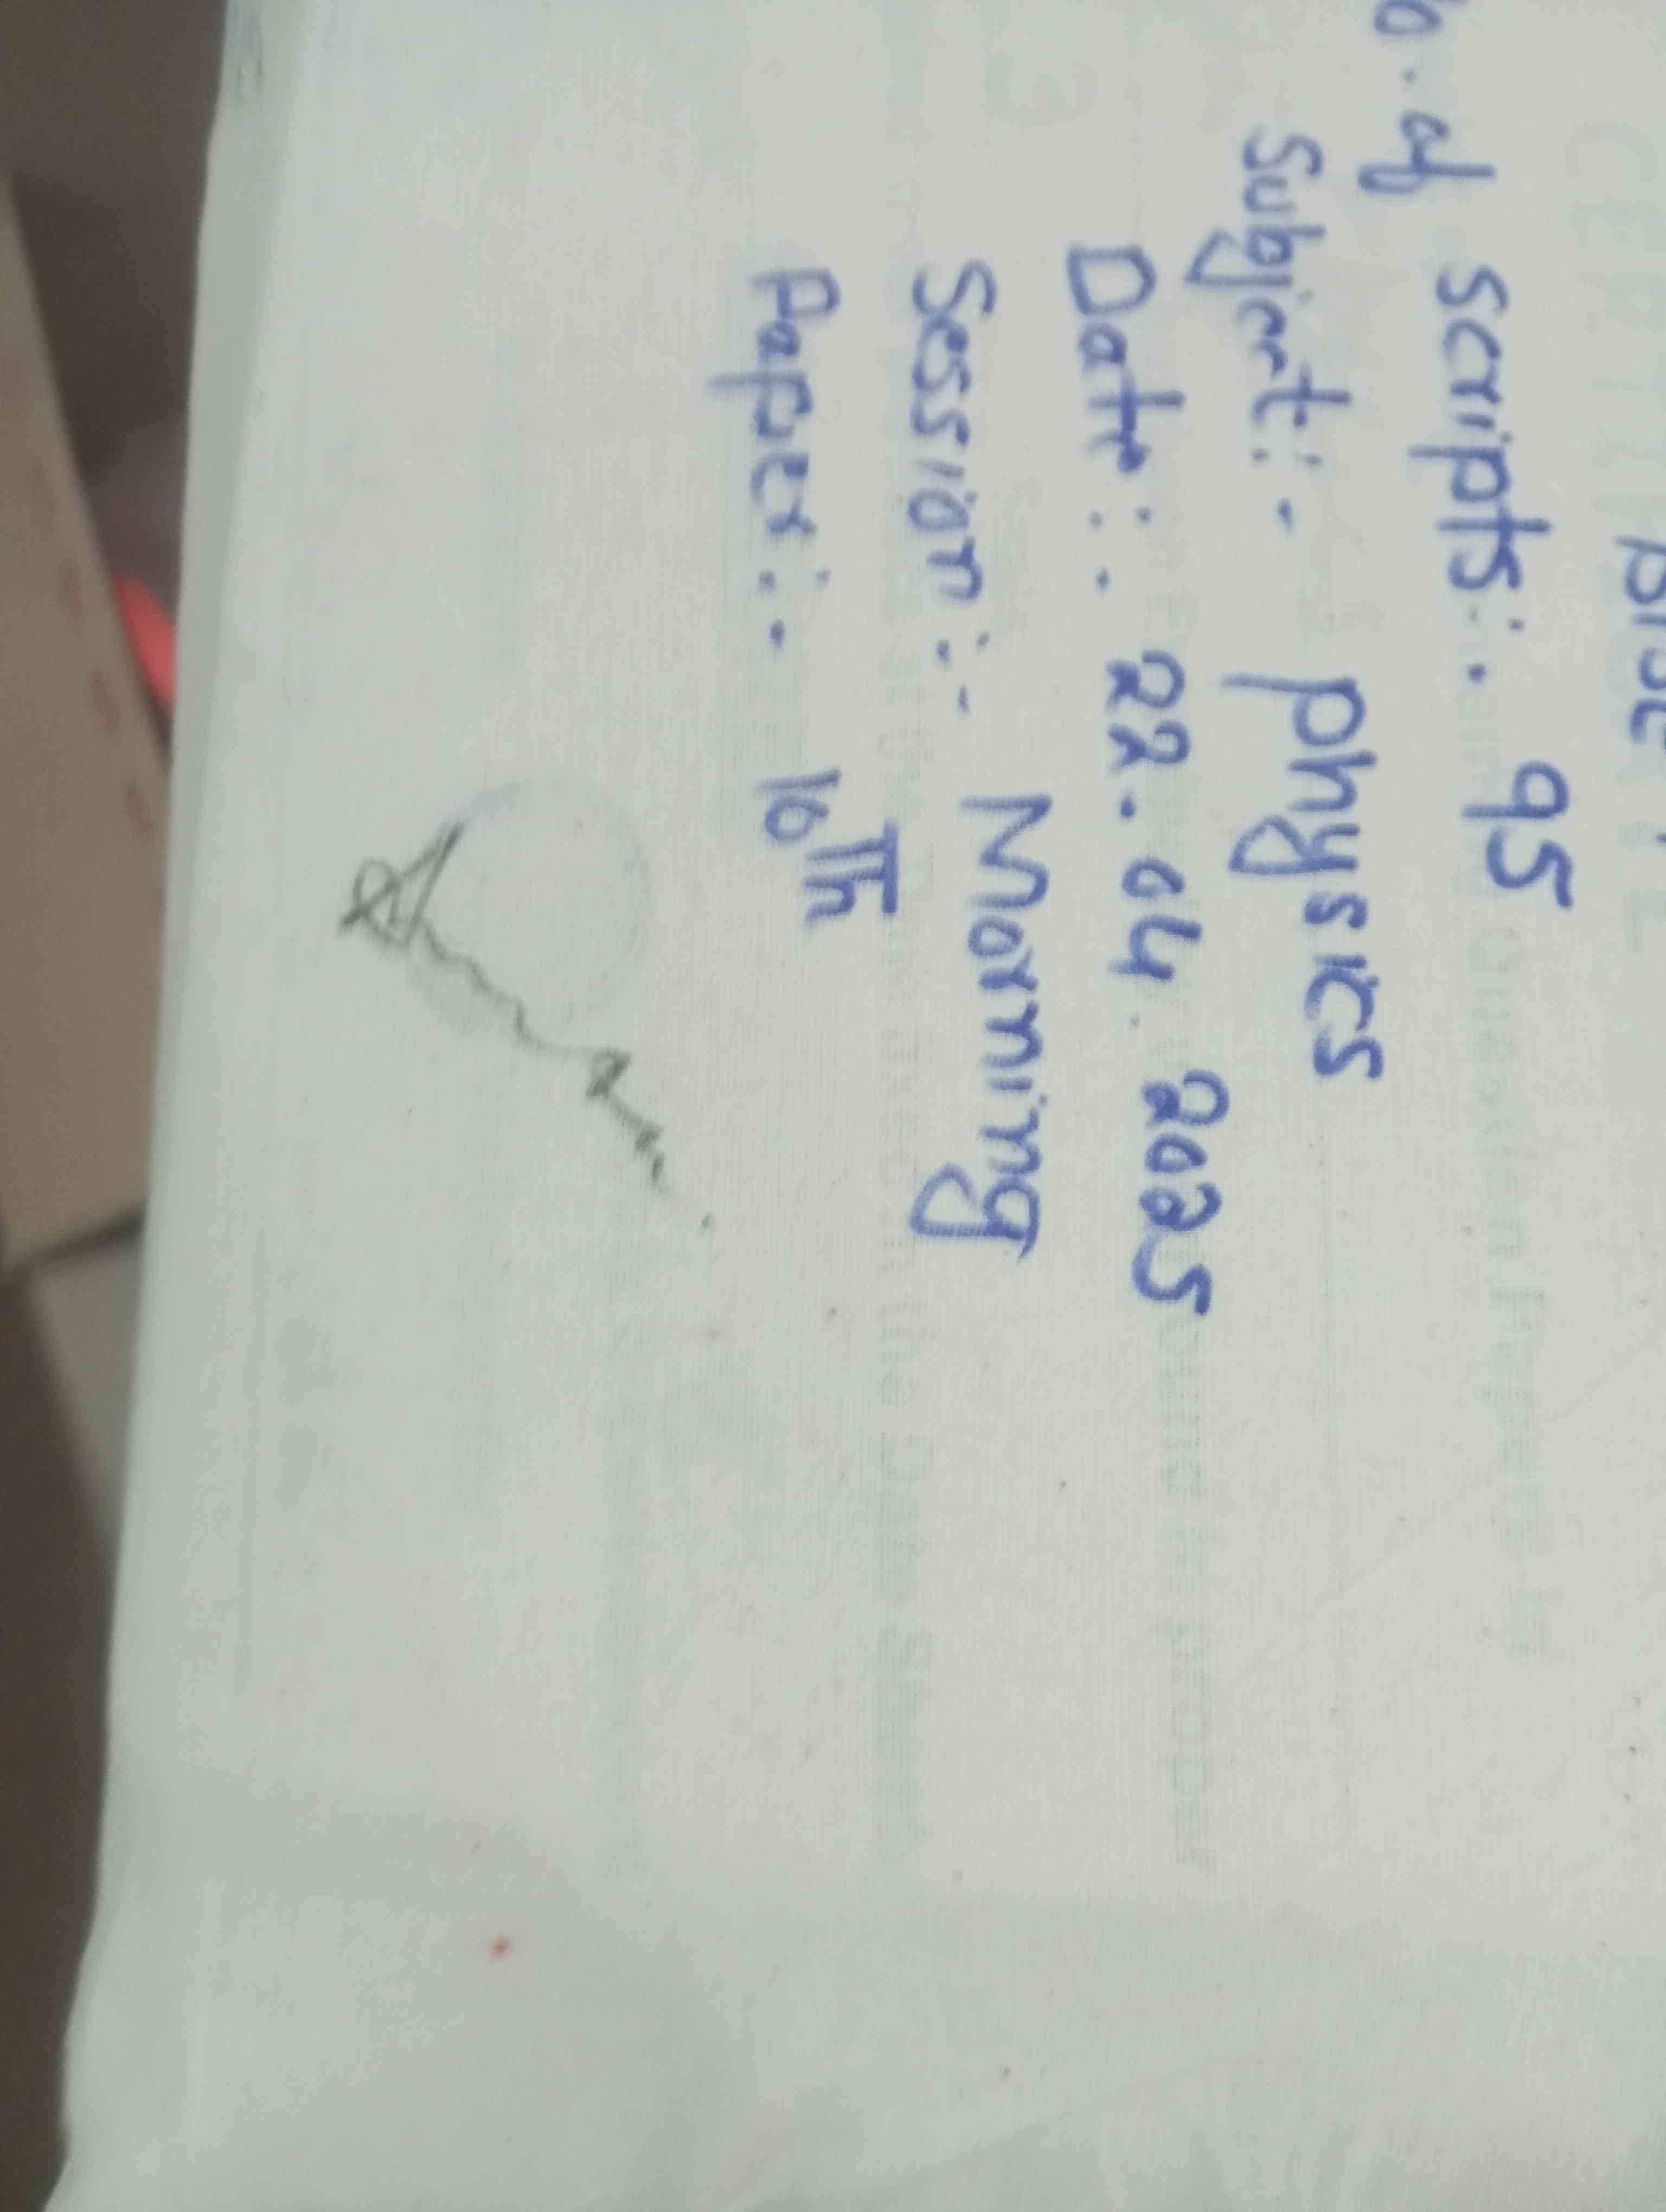 BISE
of scripts:. 95
Subject:- Physics
Date:. 22.04.2025
Session:- Morning
Paper:- 10th